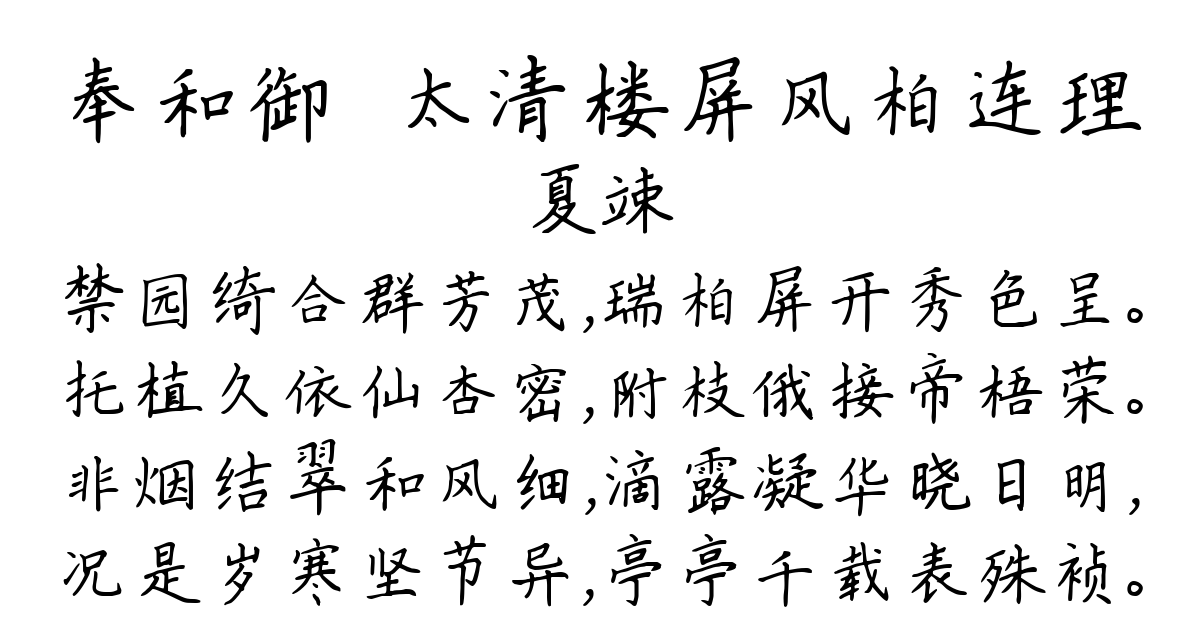 奉和御 太清楼屏风柏连理
夏竦
禁园绮合群芳茂,瑞柏屏开秀色呈。
托植久依仙杏密,附枝俄接帝梧荣。
非烟结翠和风细,滴露凝华晓日明,
况是岁寒坚节异,亭亭千载表殊祯。